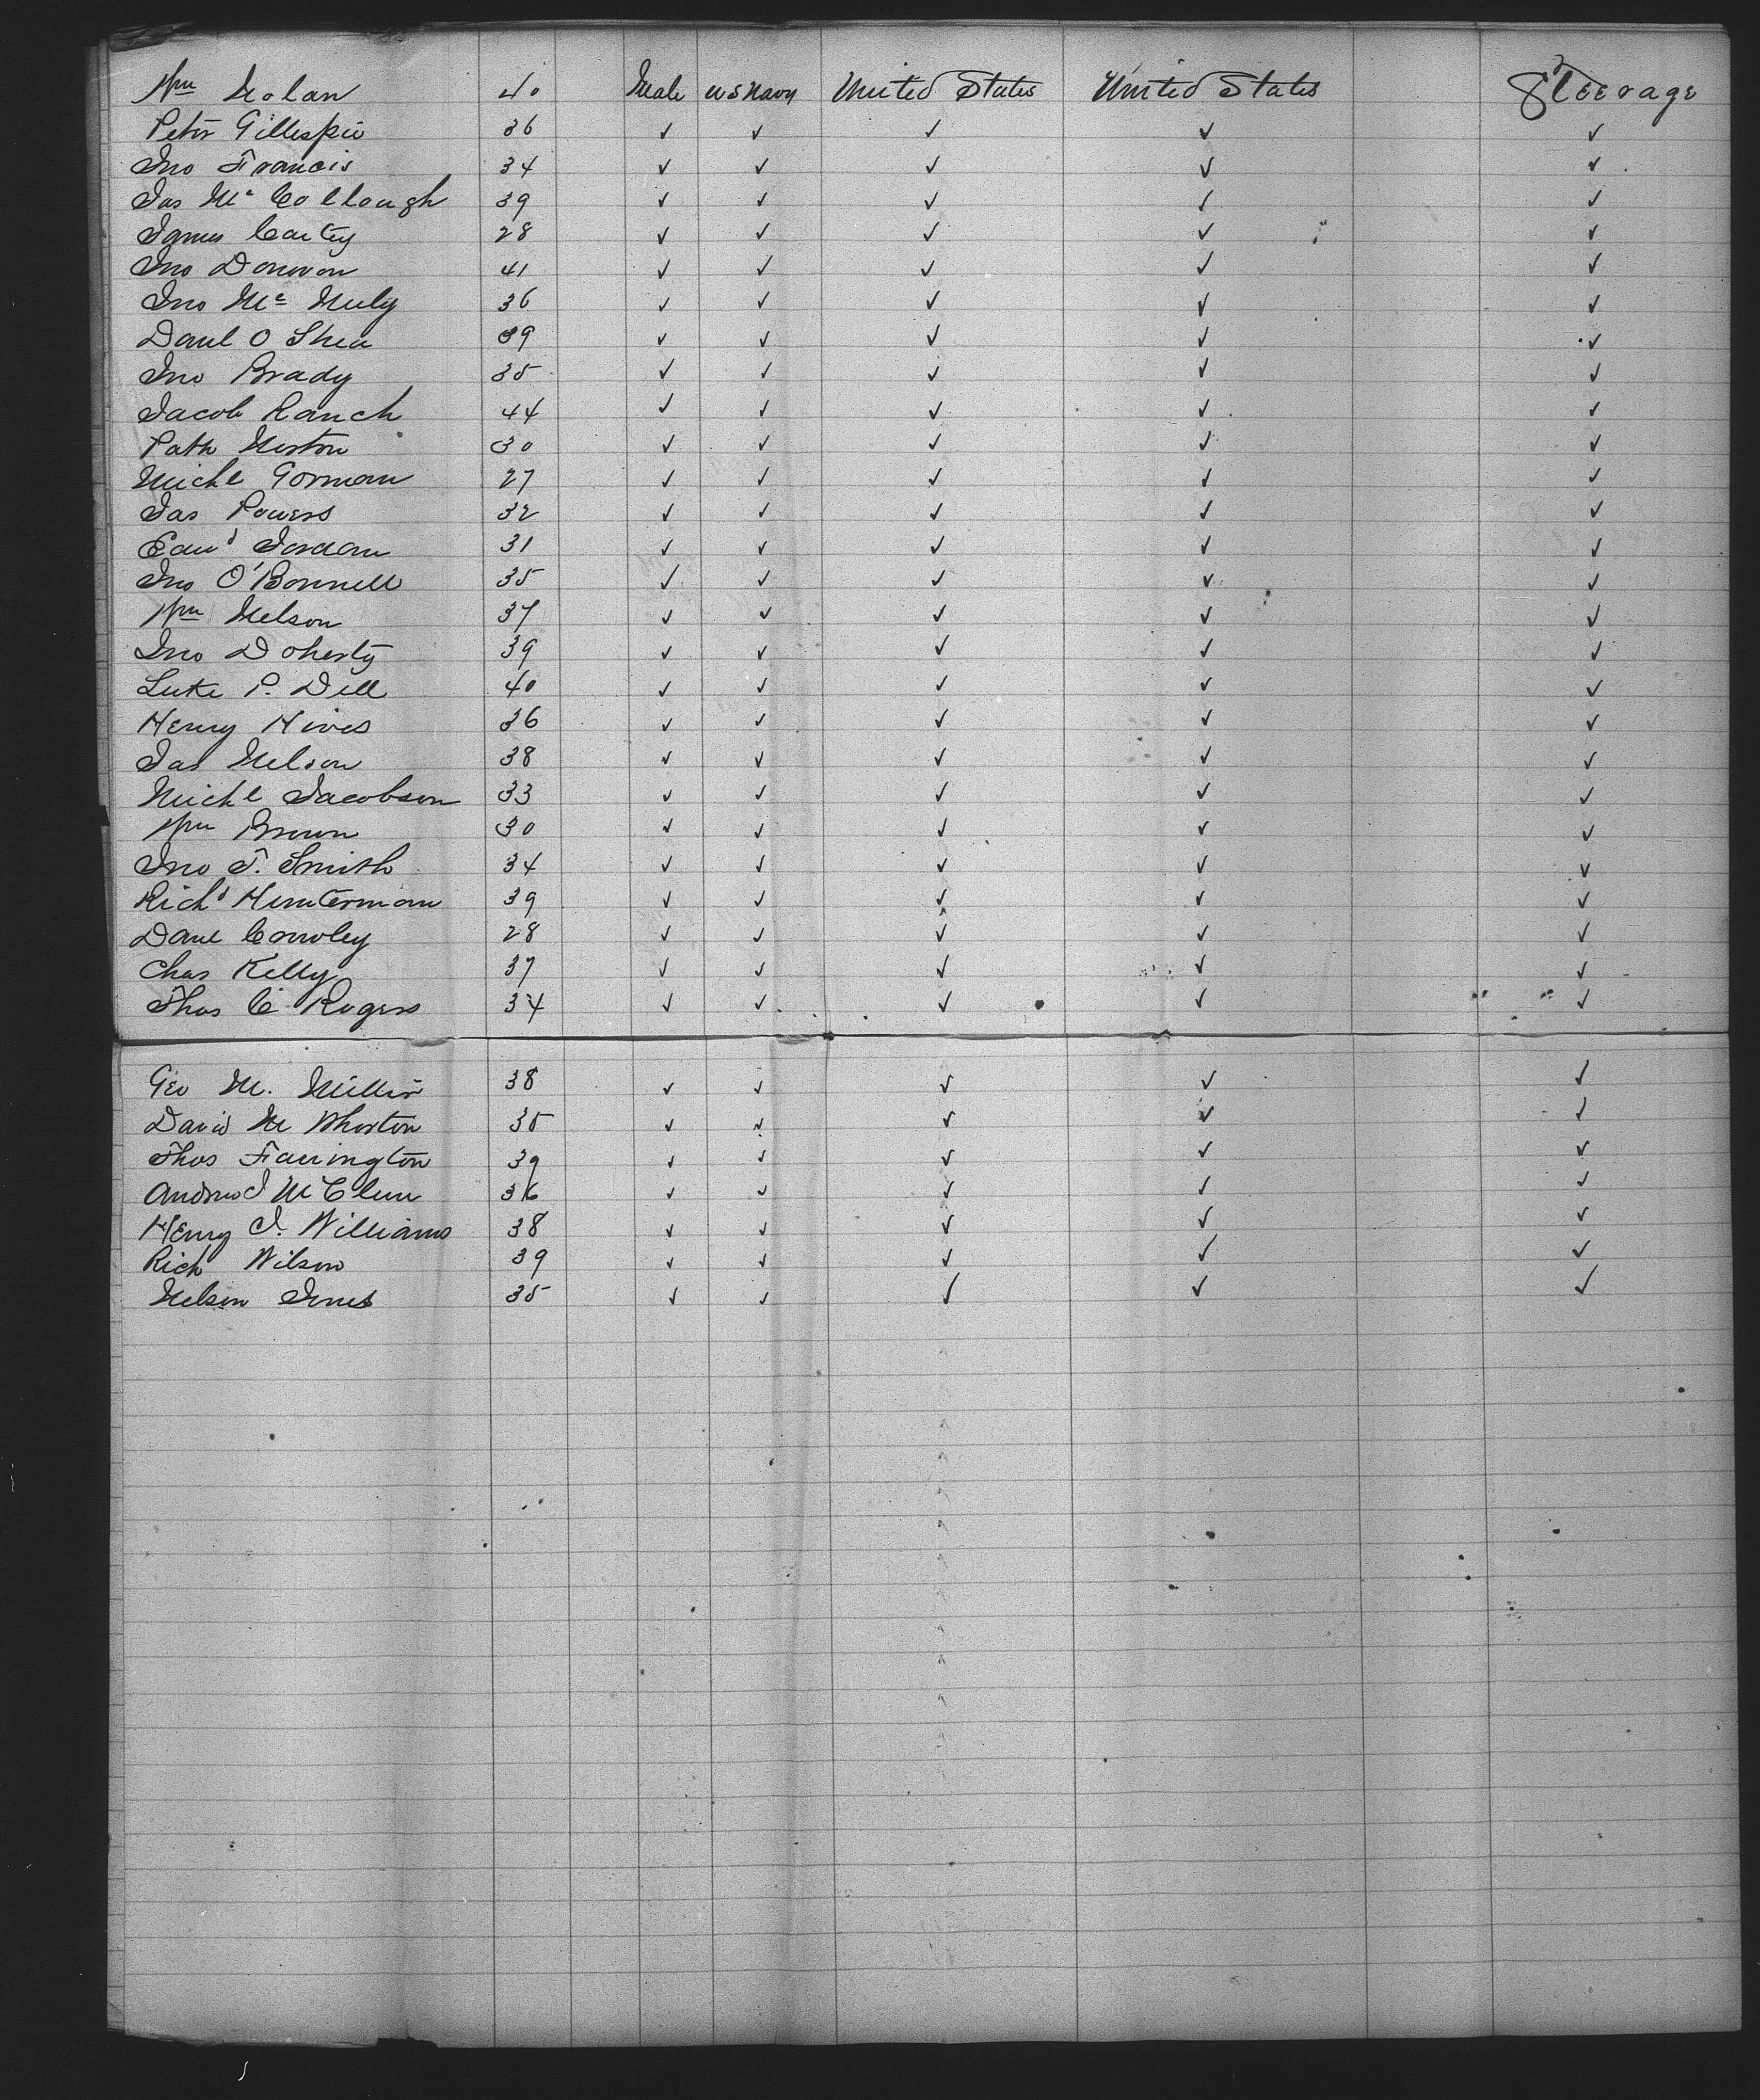 Wm Nolan 40 Male U S Navy United States United States Steerage
Peter Gillespie 36 ✓ ✓ ✓ ✓ ✓
Jno Francis 34 ✓ ✓ ✓ ✓ ✓
Jas Mc Collough 39 ✓ ✓ ✓ ✓ ✓
James Carty 28 ✓ ✓ ✓ ✓ ✓
Jno Donovan 41 ✓ ✓ ✓ ✓ ✓
Jno Mc Nuly 36 ✓ ✓ ✓ ✓ ✓
Danl O Shea 39 ✓ ✓ ✓ ✓ ✓
Jno Brady 35 ✓ ✓ ✓ ✓ ✓
Jacob Ranch 44 ✓ ✓ ✓ ✓ ✓
Patk Heston 30 ✓ ✓ ✓ ✓ ✓
Michl Gorman 27 ✓ ✓ ✓ ✓ ✓
Jas Powers 32 ✓ ✓ ✓ ✓ ✓
Edwd Jordan 31 ✓ ✓ ✓ ✓ ✓
Jno O'Bonnell 35 ✓ ✓ ✓ ✓ ✓
Wm Nelson 37 ✓ ✓ ✓ ✓ ✓
Jno Doherty 39 ✓ ✓ ✓ ✓ ✓
Luke P. Dill 40 ✓ ✓ ✓ ✓ ✓
Henry Hives 36 ✓ ✓ ✓ ✓ ✓
Jas Nelson 38 ✓ ✓ ✓ ✓ ✓
Michl Jacobson 33 ✓ ✓ ✓ ✓ ✓
Wm Brown 30 ✓ ✓ ✓ ✓ ✓
Jno T. Smith 34 ✓ ✓ ✓ ✓ ✓
Richd Hunterman 39 ✓ ✓ ✓ ✓ ✓
Danl Crowley 28 ✓ ✓ ✓ ✓ ✓
Chas Kelly 37 ✓ ✓ ✓ ✓ ✓
Thos C Rogers 34 ✓ ✓ ✓ ✓ ✓
Geo M. Miller 38 ✓ ✓ ✓ ✓ ✓
David M Whorton 35 ✓ ✓ ✓ ✓ ✓
Thos Farrington 39 ✓ ✓ ✓ ✓ ✓
Andrew J 36 ✓ ✓ ✓ ✓ ✓
Henry J. Williams 38 ✓ ✓ ✓ ✓ ✓
Rich Wilson 39 ✓ ✓ ✓ ✓ ✓
Nelson Jones 35 ✓ ✓ ✓ ✓ ✓